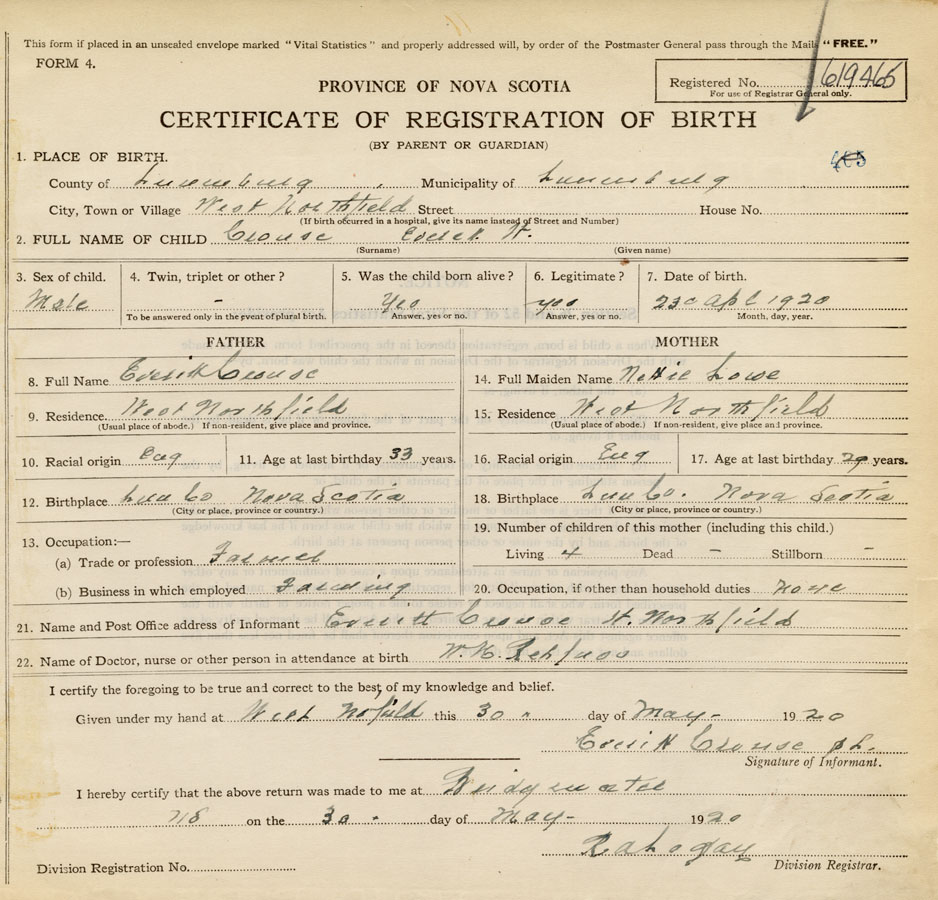 This form if placed in an unsealed envelope marked "Vital Statistics" and properly addressed will, by order of the Postmaster General pass through the Mails "FREE."
FORM 4.
PROVINCE OF NOVA SCOTIA
Registered No. 619465
For use of Registrar General only.
CERTIFICATE OF REGISTRATION OF BIRTH
(BY PARENT OR GUARDIAN)
465
1. PLACE OF BIRTH.
County of Lunenburg Municipality of Lunenburg
City, Town or Village West Northfield Street House No.
(If birth occurred in a hospital, give its name instead of Street and Number)
2. FULL NAME OF CHILD Crouse H.
(Surname) (Given name)
3. Sex of child. 4. Twin, triplet or other? 5. Was the child born alive? 6. Legitimate? 7. Date of birth.
Male - Yes yes 23 Apl 1920
To be answered only in the event of plural birth. Answer, yes or no. Answer, yes or no. Month, day, year.
FATHER MOTHER
8. Full Name Crouse 14. Full Maiden Name Nettie Lowe
9. Residence West Northfield 15. Residence West Northfield
(Usual place of abode.) If non-resident, give place and province. (Usual place of abode.) If non-resident, give place and province.
10. Racial origin Eng 11. Age at last birthday 33 years. 16. Racial origin Eng 17. Age at last birthday 29 years.
12. Birthplace Lun Co Nova Scotia 18. Birthplace Lun Co. Nova Scotia
(City or place, province or country.) (City or place, province or country.)
19. Number of children of this mother (including this child.)
13. Occupation:—
Living 4 Dead - Stillborn -
(a) Trade or profession Farmer
(b) Business in which employed Farming 20. Occupation, if other than household duties None
21. Name and Post Office address of Informant Everitt Crouse W. Northfield
22. Name of Doctor, nurse or other person in attendance at birth W. H.
I certify the foregoing to be true and correct to the best of my knowledge and belief.
Given under my hand at West this 30 " day of May - 1920
Crouse
Signature of Informant.
I hereby certify that the above return was made to me at Bridgewater
NS on the 30 " day of May - 1920
Division Registration No. Division Registrar.